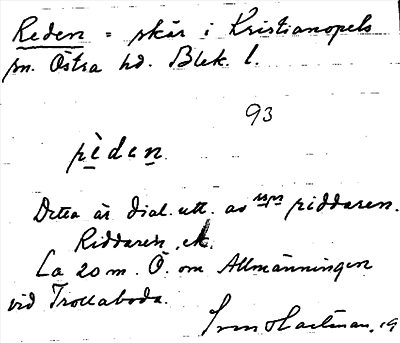 Reden = skär i Kristianopels
sn. Östra hd. Blek. l.
93
ṛèdeṇ
Detta är dial. utt. av riddaren.
Riddaren
Ca 20 m. Ö. om Allmänningen
vid Trollaboda.